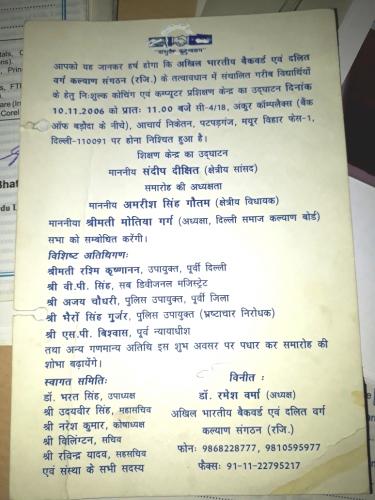 "वसुधैव कुटुम्बकम्"
आपको यह जानकर हर्ष होगा कि अखिल भारतीय बैकवर्ड एवं दलित
वर्ग कल्याण संगठन (रजि.) के तत्वावधान में संचालित गरीब विद्यार्थियों
के हेतु निःशुल्क कोचिंग एवं कम्प्यूटर प्रशिक्षण केन्द्र का उद्घाटन दिनांक
10.11.2006 को प्रातः 11.00 बजे सी-4/18, अंकुर कॉम्पलैक्स (बैंक
ऑफ बड़ौदा के नीचे), आचार्य निकेतन, पटपड़गंज, मयूर विहार फेस-1,
दिल्ली-110091 पर होना निश्चित हुआ है।
शिक्षण केन्द्र का उद्घाटन
माननीय संदीप दीक्षित (क्षेत्रीय सांसद)
समारोह की अध्यक्षता
माननीय अमरीश सिंह गौतम (क्षेत्रीय विधायक)
माननीया श्रीमती मोतिया गर्ग (अध्यक्षा, दिल्ली समाज कल्याण बोर्ड)
सभा को सम्बोधित करेंगी।
विशिष्ट अतिथिगणः
श्रीमती रश्मि कृष्णानन, उपायुक्त, पूर्वी दिल्ली
श्री वी.पी. सिंह, सब डिवीजनल मजिस्ट्रेट
श्री अजय चौधरी, पुलिस उपायुक्त, पूर्वी जिला
श्री भैरों सिंह गुर्जर, पुलिस उपायुक्त (भ्रष्टाचार निरोधक)
श्री एस.पी. बिश्वास, पूर्व न्यायाधीश
तथा अन्य गणमान्य अतिथि इस शुभ अवसर पर पधार कर समारोह की
शोभा बढ़ायेंगे।
स्वागत समितिः
डॉ. भरत सिंह, उपाध्यक्ष
श्री उदयवीर सिंह, महासचिव
श्री नरेश कुमार, कोषाध्यक्ष
श्री विलिंग्टन, सचिव
श्री रविन्द्र यादव, सहसचिव
एवं संस्था के सभी सदस्य
विनीत :
डॉ. रमेश वर्मा (अध्यक्ष)
अखिल भारतीय बैकवर्ड एवं दलित वर्ग
कल्याण संगठन (रजि.)
फोनः 9868228777, 9810595977
फैक्सः 91-11-22795217